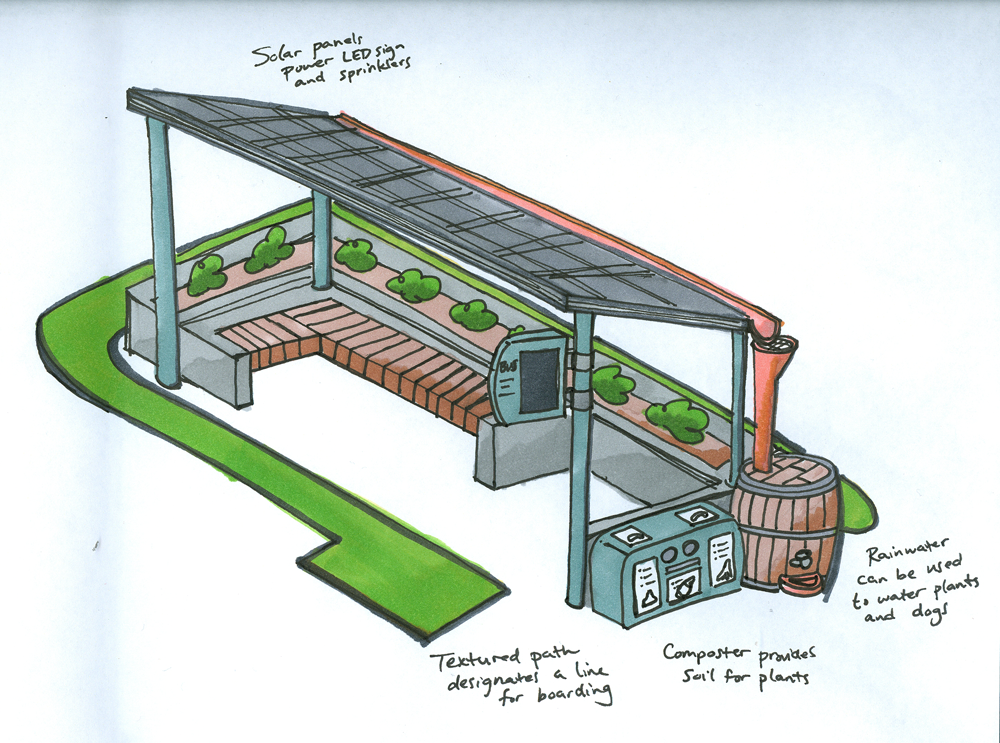 Solar panels
power LED sign
and sprinklsers
BUS
Rainwater
can be used
to water plants
and dogs
Textured path
designates a line
for boarding
Composter provides
soil for plants